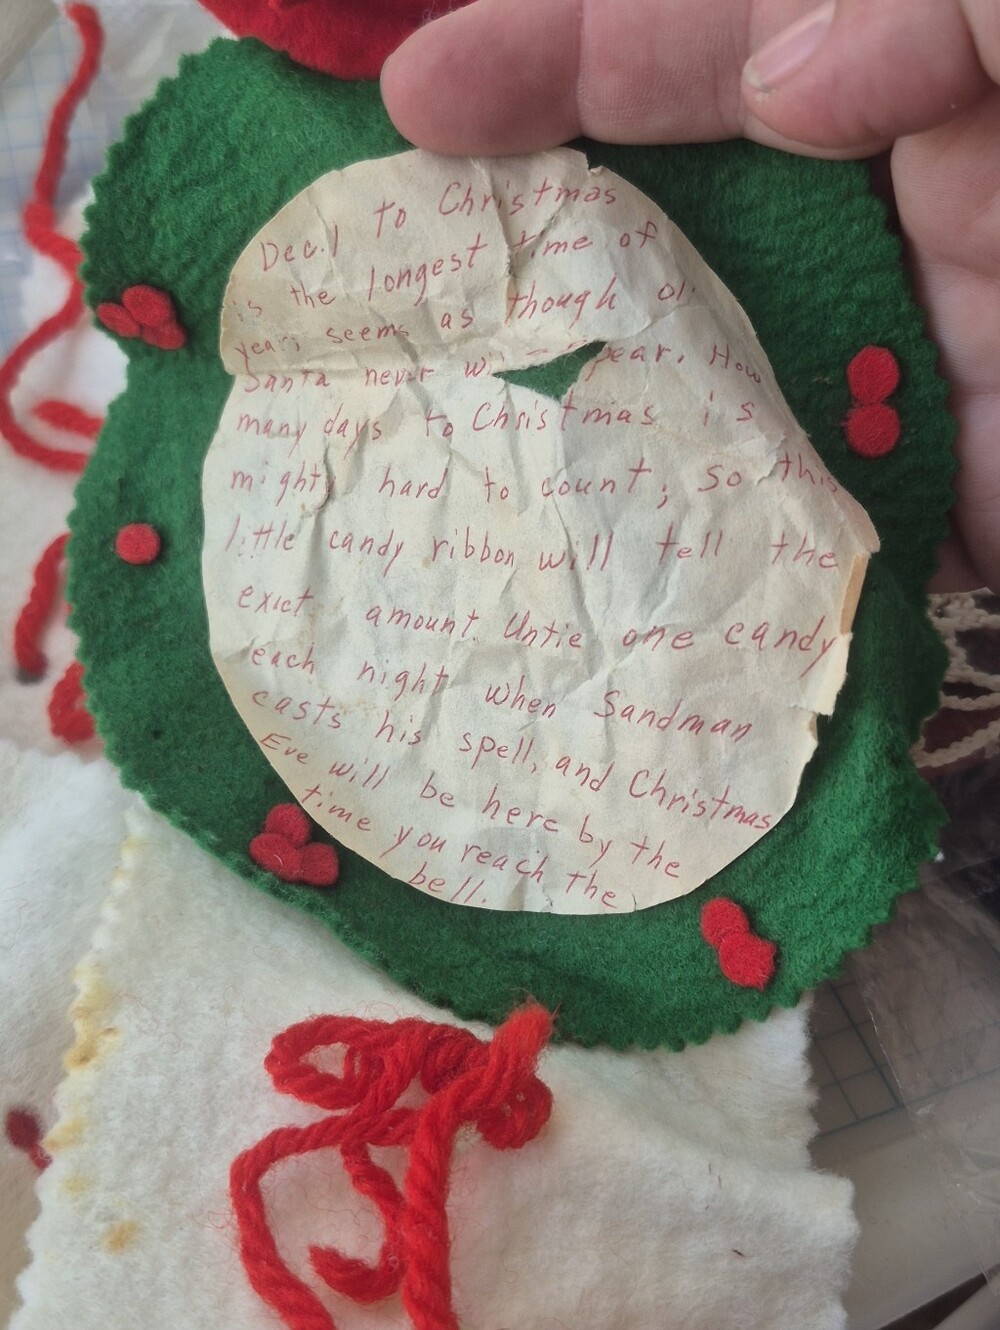 Dec. 1 to Christmas
is the longest time of
year; seems as though ol
Santa never pear. How
many days to Christmas is
mighty hard to count; so this
little candy ribbon will tell the
exact amount. Untie one candy
each night when Sandman
casts his spell, and Christmas
Eve will be here by the
time you reach the
bell.